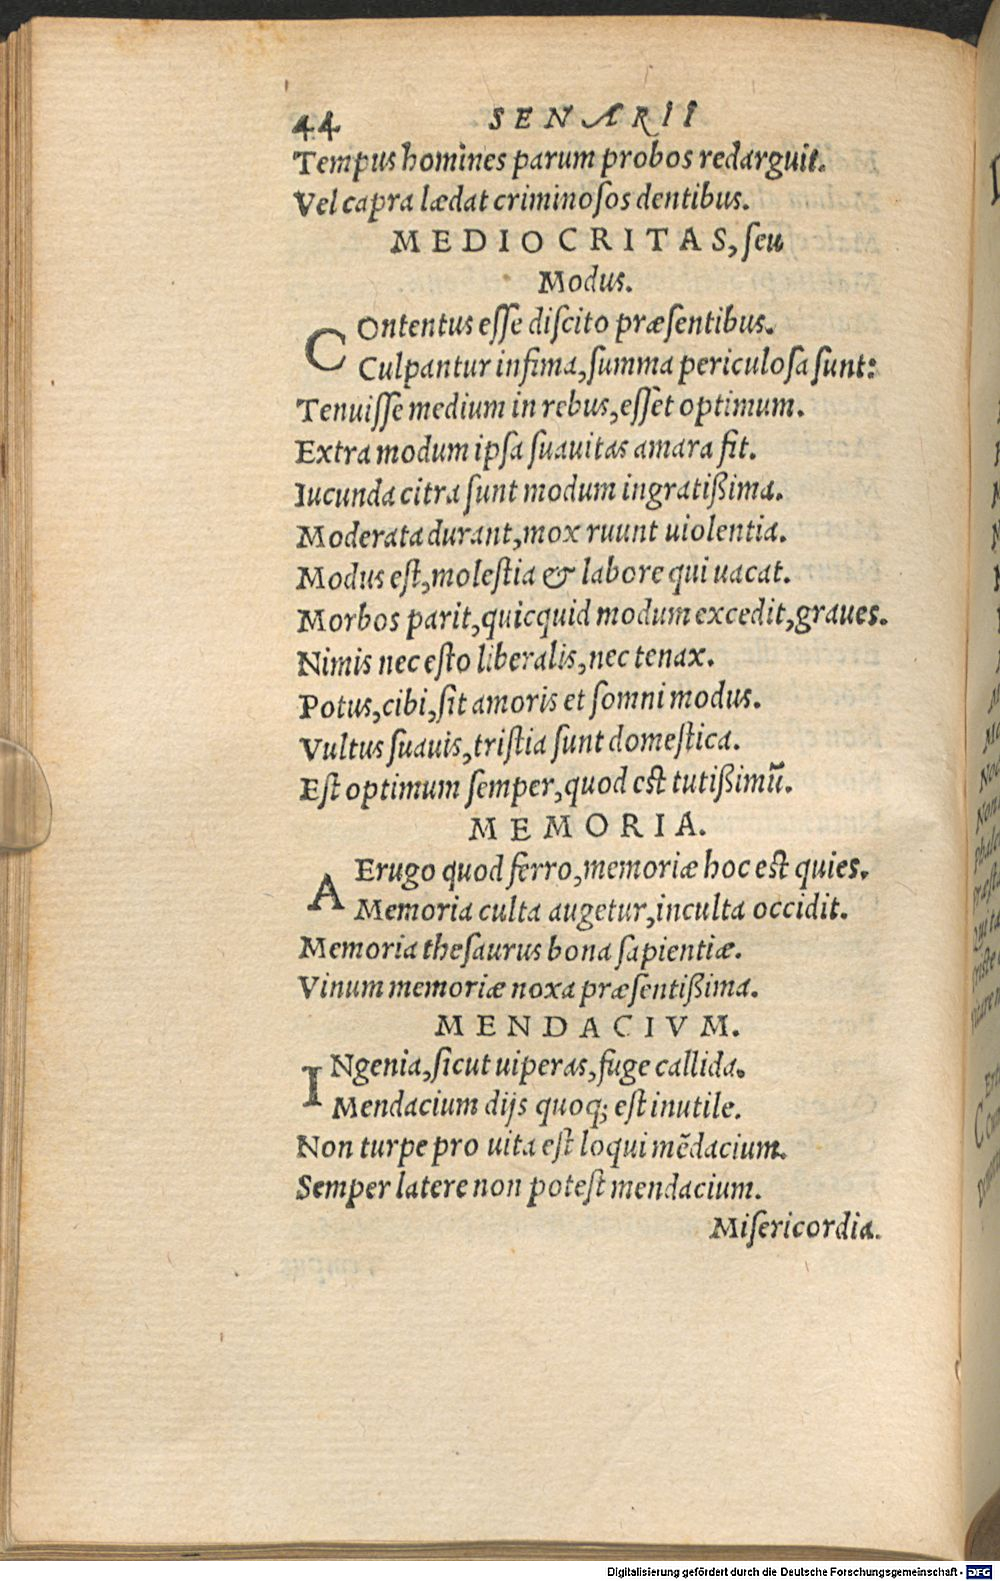 44 SENARII
Tempus homines parum probos redarguit.
Vel capra lædat criminoſos dentibus.
MEDIOCRITAS, ſeu
Modus.
COntentus eſſe diſcito præſentibus.
Culpantur infima, ſumma periculoſa ſunt:
Tenuiſſe medium in rebus, eſſet optimum.
Extra modum ipſa ſuauitas amara fit.
Iucunda citra ſunt modum ingratißima.
Moderata durant, mox ruunt uiolentia.
Modus eſt, moleſtia & labore qui uacat.
Morbos parit, quicquid modum excedit, graues.
Nimis nec eſto liberalis, nec tenax.
Potus, cibi, ſit amoris et ſomni modus.
Vultus ſuauis, triſtia ſunt domeſtica.
Eſt optimum ſemper, quod eſt tutißimū.
MEMORIA.
AErugo quod ferro, memoriæ hoc eſt quies.
Memoria culta augetur, inculta occidit.
Memoria theſaurus bona ſapientiæ.
Vinum memoriæ noxa præſentißima.
MENDACIVM.
INgenia, ſicut uiperas, fuge callida.
Mendacium dijs quoq; eſt inutile.
Non turpe pro uita eſt loqui mēdacium.
Semper latere non poteſt mendacium.
Miſericordia.
Digitalisierung gefördert durch die Deutsche Forschungsgemeinschaft - DFG